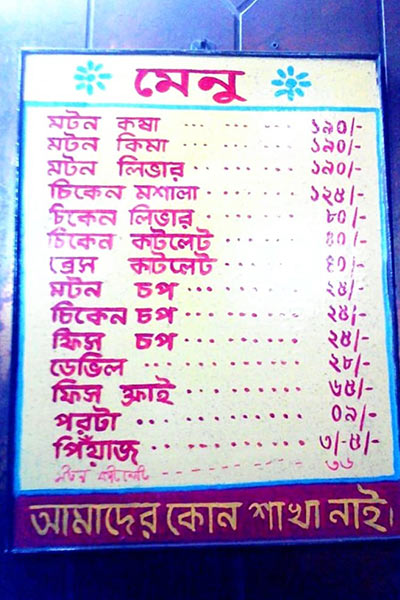 মেনু
মটন কষা ... ... ... ১৯০/-
মটন কিমা ... ... ... ১৯০/-
মটন লিভার ... ... ... ১৯০/-
চিকেন মশালা ... ... ... ১২৫/-
চিকেন লিভার ... ... ... ৮০/-
চিকেন কটলেট ... ... ... ৪০/-
ব্রেস কটলেট ... ... ... ৪০/-
মটন চপ ... ... ... ২৫/-
চিকেন চপ ... ... ... ২৫/-
ফিস চপ ... ... ... ২৫/-
ডেভিল ... ... ... ২৮/-
ফিস ফ্রাই ... ... ... ৬৫/-
পরটা ... ... ... ০৯/-
পিঁয়াজ ... ... ... ৩/-৫/-
মটন ... ... ... ৩৬
আমাদের কোন শাখা নাই।